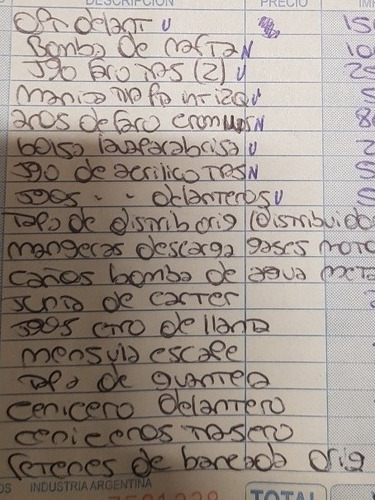 DESCRIPCION PRECIO IMP
OPT DELANT U 150
Bomba de nafta N 100
Jgo faro TRAS (2) U 25
manija TAPA int izq U 5
aros de faro cromados N 80
bolsa lavaparabrisa U 2
Jgo de acrilico TRAS N 5
Jgos - - delanteros U 5
Tapa de distrib orig (distribuido
mangeras descarga gases moto
caños bomba de agua meta
Junta de carter
Jgos ctro de llanta
mensula escape
Tapa de guantera
cenicero delantero
ceniceros trasero
retenes de bancada orig
INDUSTRIA ARGENTINA TOTAL